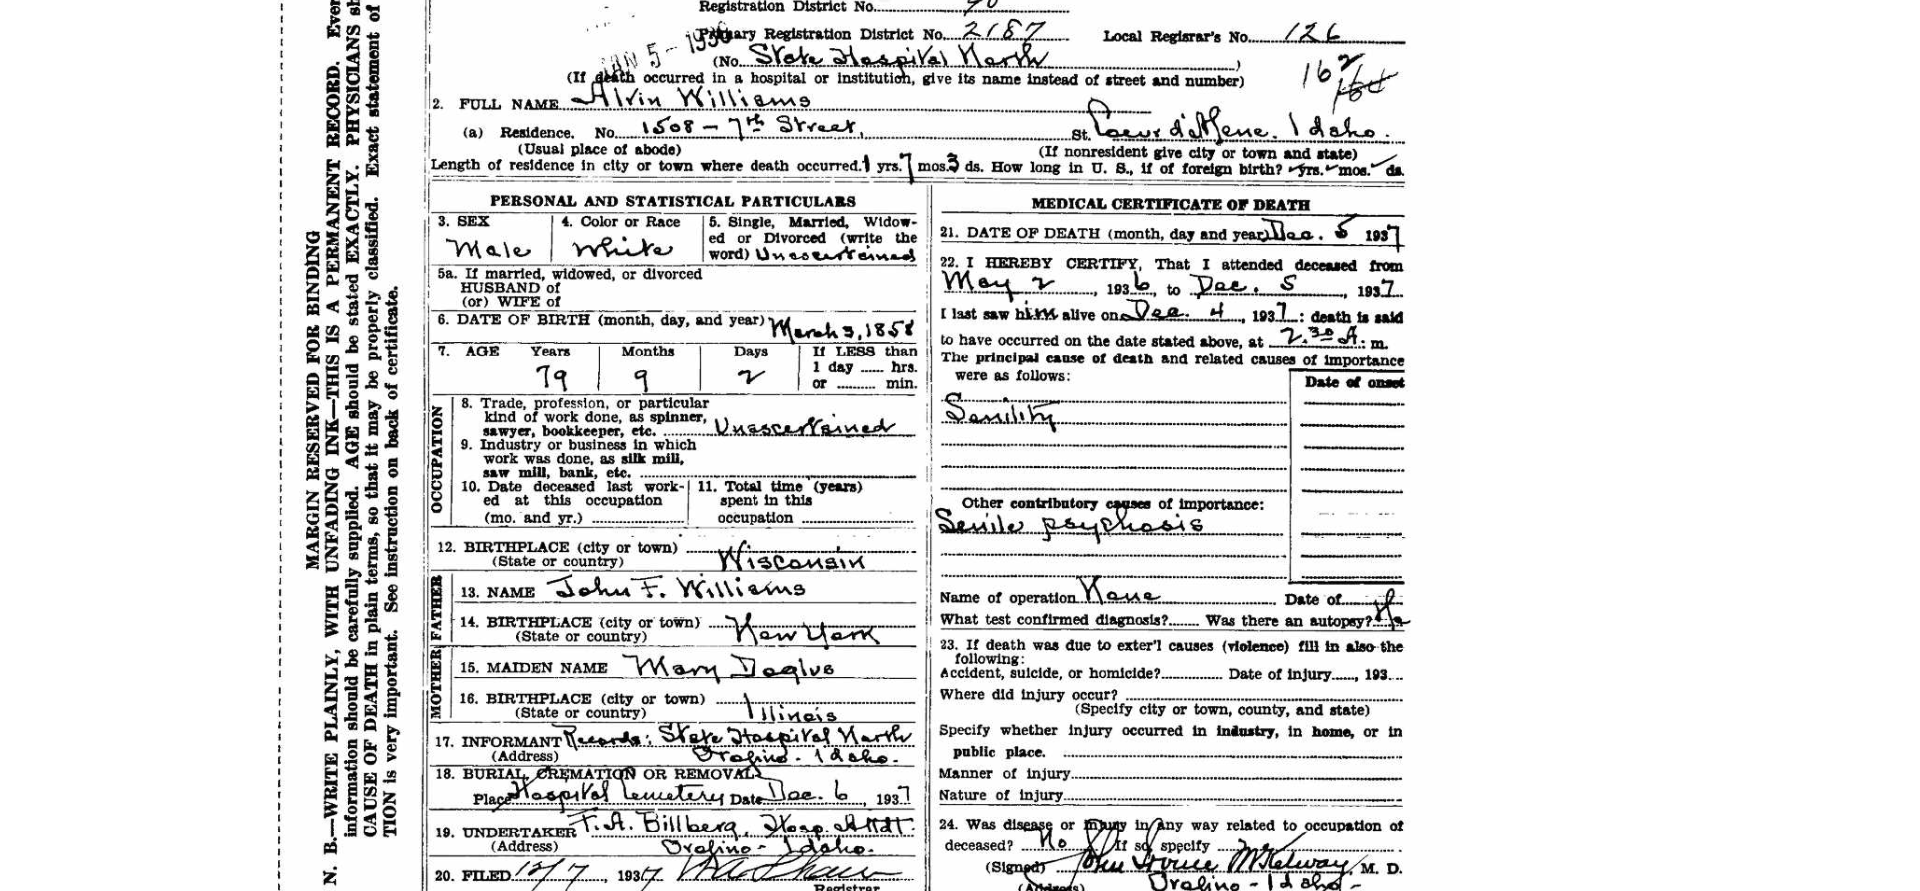 Registration District No. 90
JAN 5 - 1938
Primary Registration District No. 2187 Local Regisrar's No. 126
(No. State Hospital North )
(If death occurred in a hospital or institution, give its name instead of street and number)
162
2. FULL NAME Alvin Williams
(a) Residence. No. 1508 - 7th Street, St. Coeur d'Alene. Idaho.
(Usual place of abode) (If nonresident give city or town and state)
Length of residence in city or town where death occurred. 1 yrs. 7 mos. 3 ds. How long in U. S., if of foreign birth? yrs. mos. ds.
PERSONAL AND STATISTICAL PARTICULARS
3. SEX
Male
4. Color or Race
White
5. Single, Married, Widow-
ed or Divorced (write the
word) Unascertained
5a. If married, widowed, or divorced
HUSBAND of
(or) WIFE of
6. DATE OF BIRTH (month, day, and year) March 3, 1858
7. AGE Years Months Days
79 9 2
If LESS than
1 day ...... hrs.
or .......... min.
OCCUPATION
8. Trade, profession, or particular
kind of work done, as spinner,
sawyer, bookkeeper, etc. Unascertained
9. Industry or business in which
work was done, as silk mill,
saw mill, bank, etc.
10. Date deceased last work-
ed at this occupation
(mo. and yr.)
11. Total time (years)
spent in this
occupation
12. BIRTHPLACE (city or town)
(State or country) Wisconsin
FATHER
13. NAME John F. Williams
14. BIRTHPLACE (city or town)
(State or country) New York
MOTHER
15. MAIDEN NAME Mary Doglus
16. BIRTHPLACE (city or town)
(State or country) Illinois
17. INFORMANT Records: State Hospital North
(Address) Orofino - Idaho.
18. BURIAL, CREMATION OR REMOVAL
Place Hospital Cemetery Date Dec. 6, 1937
19. UNDERTAKER F. A. Billberg, Hosp. Attdt.
(Address) Orofino - Idaho.
20. FILED 12/7, 1937
Registrar
MEDICAL CERTIFICATE OF DEATH
21. DATE OF DEATH (month, day and year) Dec. 5 1937
22. I HEREBY CERTIFY, That I attended deceased from
May 2, 1936, to Dec. 5, 1937.
I last saw him alive on Dec. 4, 1937: death is said
to have occurred on the date stated above, at 2.30 A. m.
The principal cause of death and related causes of importance
were as follows:
Date of onset
Senility
Other contributory causes of importance:
Senile psychosis
Name of operation None Date of
What test confirmed diagnosis? Was there an autopsy? No
23. If death was due to exter'l causes (violence) fill in also the
following:
Accident, suicide, or homicide? Date of injury......, 193...
Where did injury occur?
(Specify city or town, county, and state)
Specify whether injury occurred in industry, in home, or in
public place.
Manner of injury
Nature of injury
24. Was disease or injury in any way related to occupation of
deceased? No If so specify
(Signed) John McKelway, M. D.
(Address) Orofino - Idaho -
MARGIN RESERVED FOR BINDING
N. B.—WRITE PLAINLY, WITH UNFADING INK—THIS IS A PERMANENT RECORD. Ever
information should be carefully supplied. AGE should be stated EXACTLY. PHYSICIANS sh
CAUSE OF DEATH in plain terms, so that it may be properly classified. Exact statement of
TION is very important. See instruction on back of certificate.